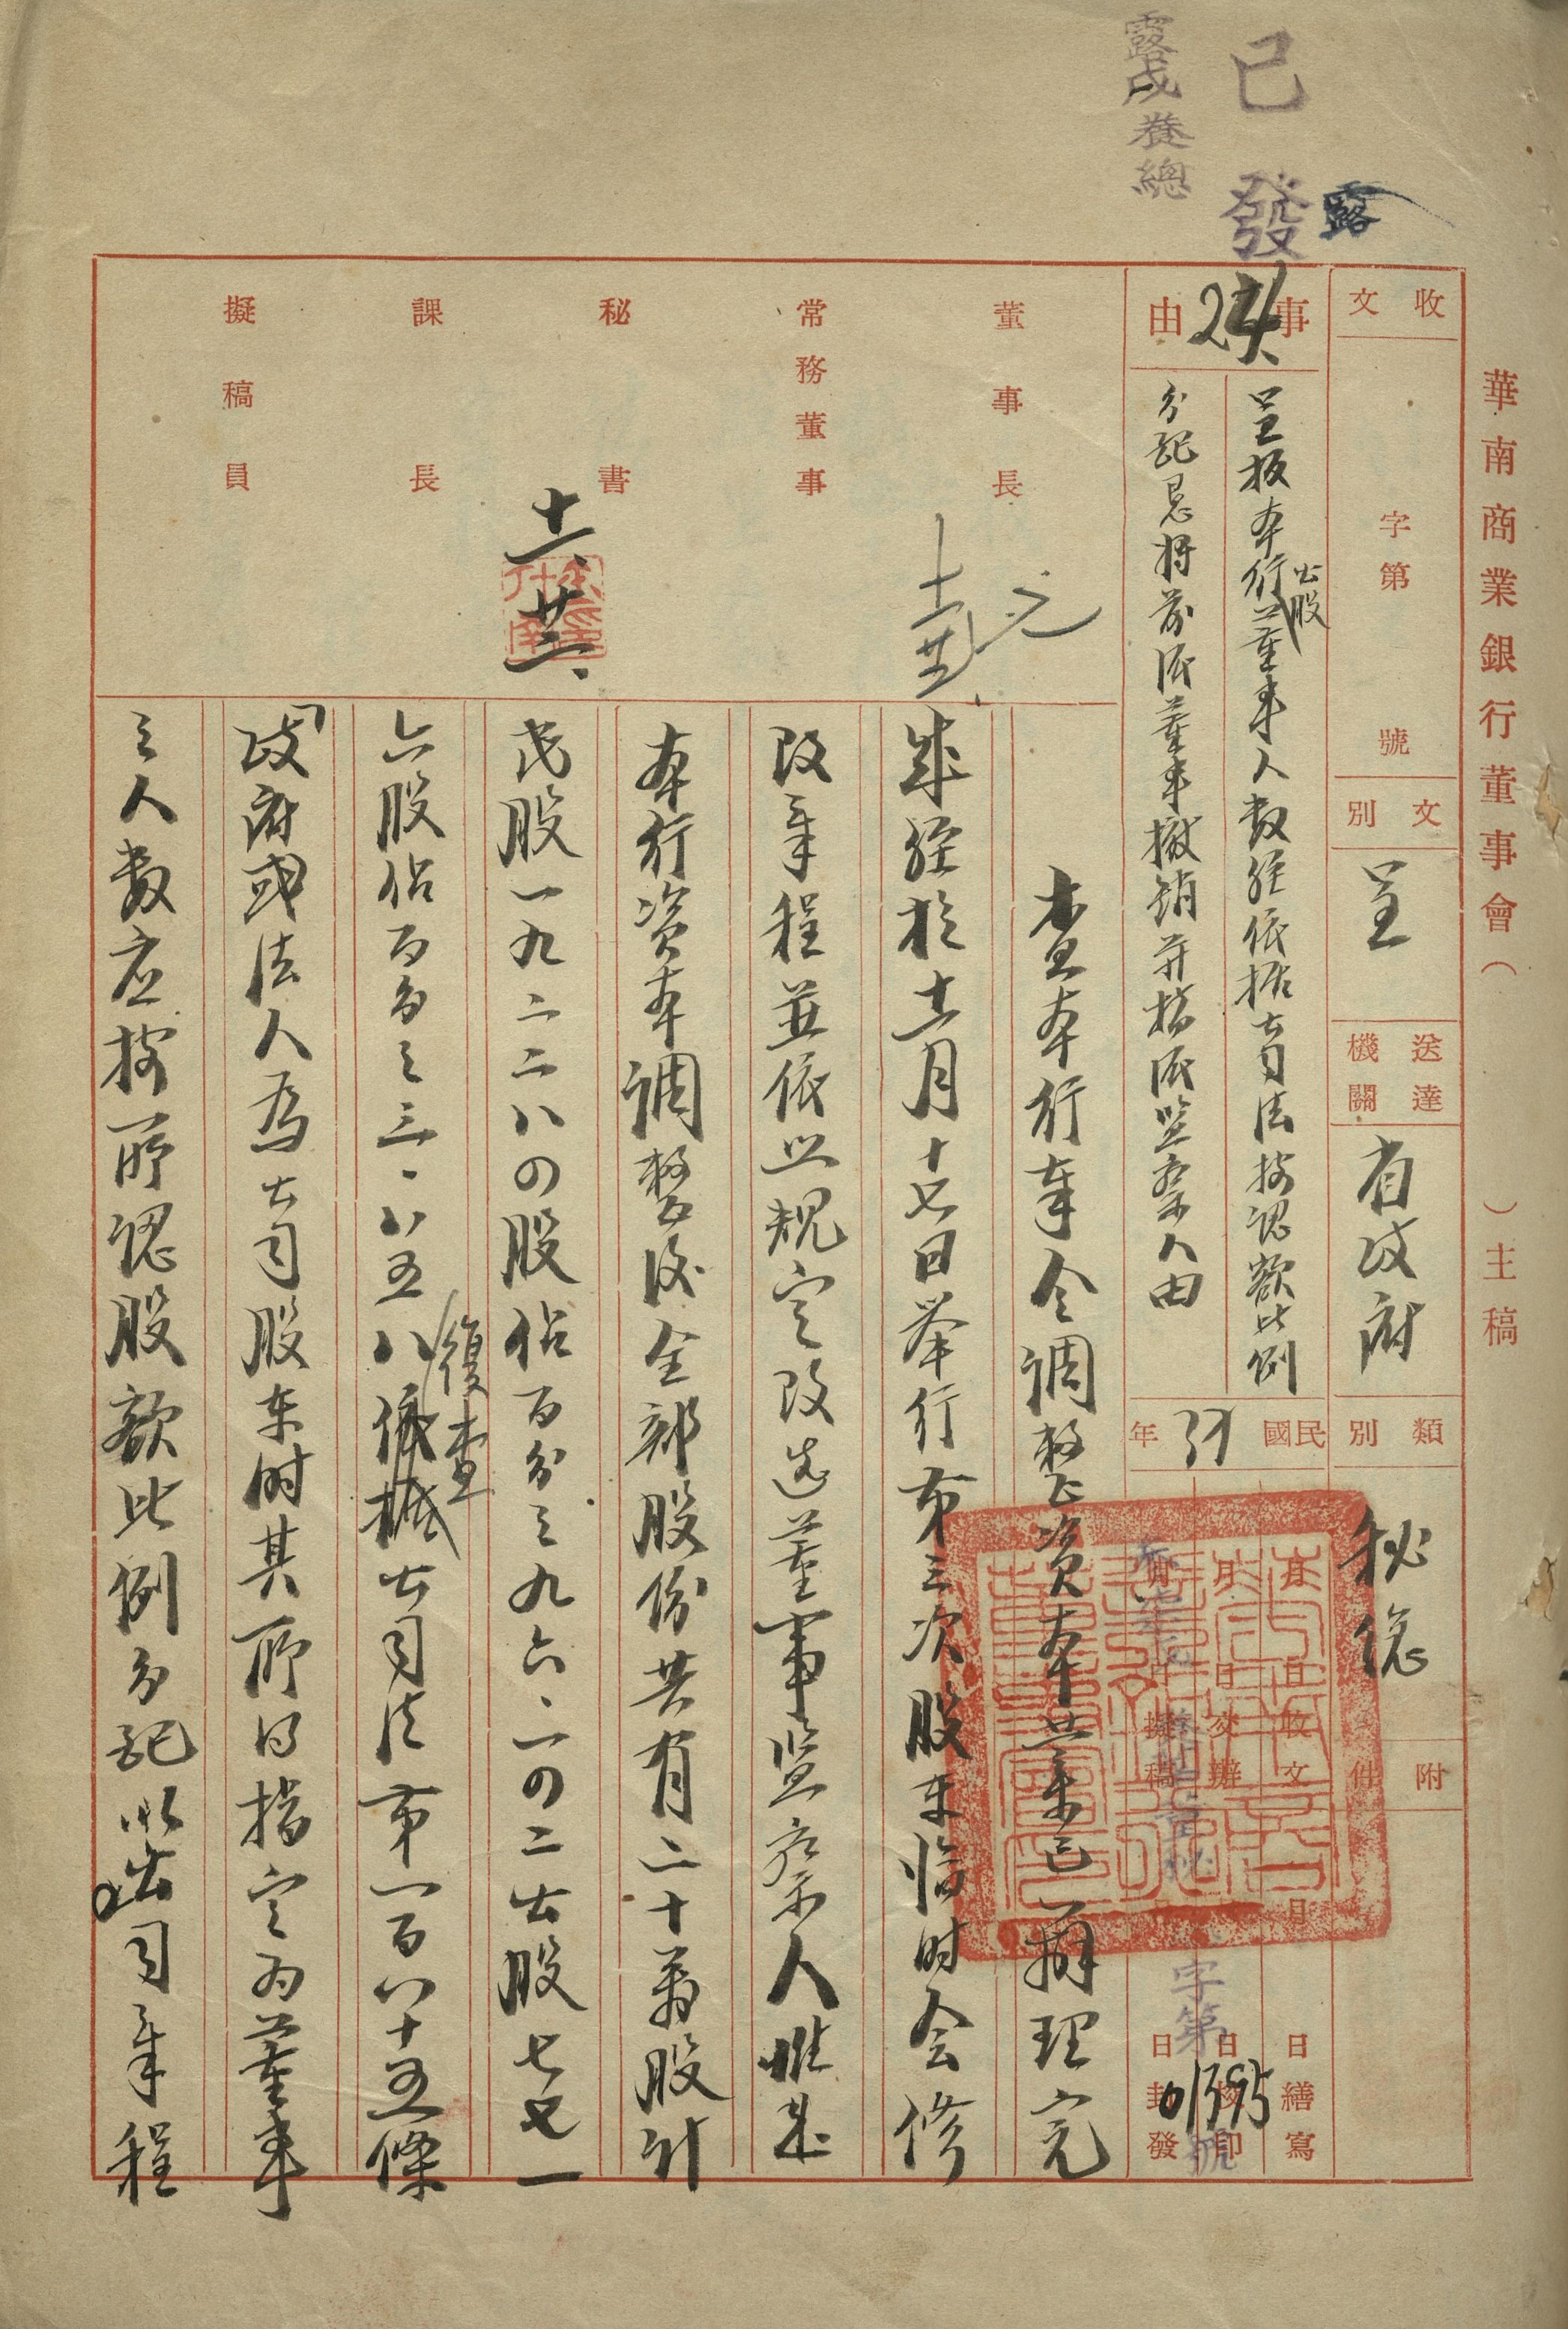 華南商業銀行董事會（　　）主稿
已發
露
露戌養總
收文
字第　　號
文別
呈
送達機關
省政府
類別
秘總
附件
事由
24
呈報本行公股董事人數經依據公司法按認額比例
分配懇將前派董事撤銷并指派監察人由
民國39年
月　日收文
月　日交辦
月　日擬稿
月　日繕寫
日校印
日封發
字第01395號
董事長
常務董事
秘書
課長
擬稿員
十一、廿二、
查本行奉令調整資本業已辦理完
峻經於十一月十七日舉行第三次股東臨時会修
改章程並依照規定改选董事監察人惟是
本行資本調整後全部股份共有二十萬股計
民股一九二二八〇股佔百分之九六、一四〇二公股七七一
六股佔百分之三、八五八復查公司法第一百八十五條
「政府或法人為公司股東时其所得指定為董事
之人數应按所認股額比例分配以公司章程